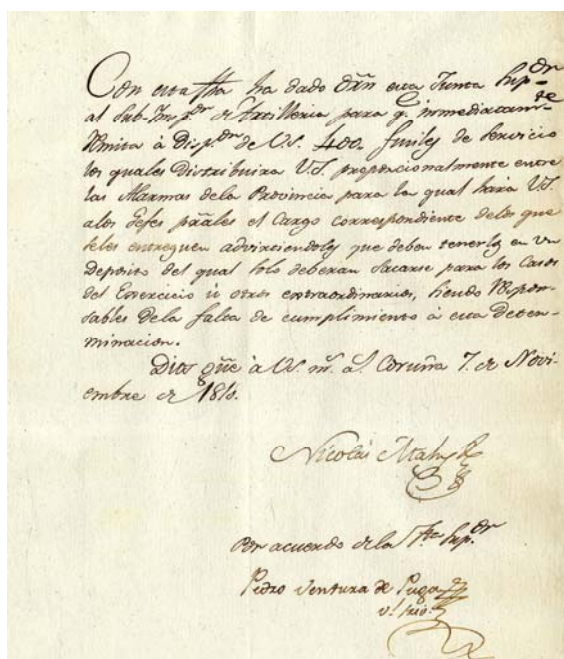 Con esta fha ha dado orñ esta Junta Sup.or
al Sub-Insp.or de Artilleria para q.e inmediatam.te
Remita à Disp.on de V.S. 400. fusiles de Servicio
los quales Distribuira V.S. proporcionalmente entre
las Alarmas dela Provincia para lo qual hará V.S.
alos Gefes prãles el Cargo correspondiente delos que
seles entreguen advirtiendoles que deben tenerlos en un
Deposito del qual solo deberan Sacarse para los Casos
del Exercicio ù otros extraordinarios, siendo Respon-
sables Dela falta de cumplimiento à esta Deter-
minacion.
Dios gũe à V.S. m.s a.s Coruña 7. de Novi-
embre de 1810.
Nicolás Mahy
Por acuerdo dela Jta Sup.or
Pedro Ventura de Puga
v.l srio.